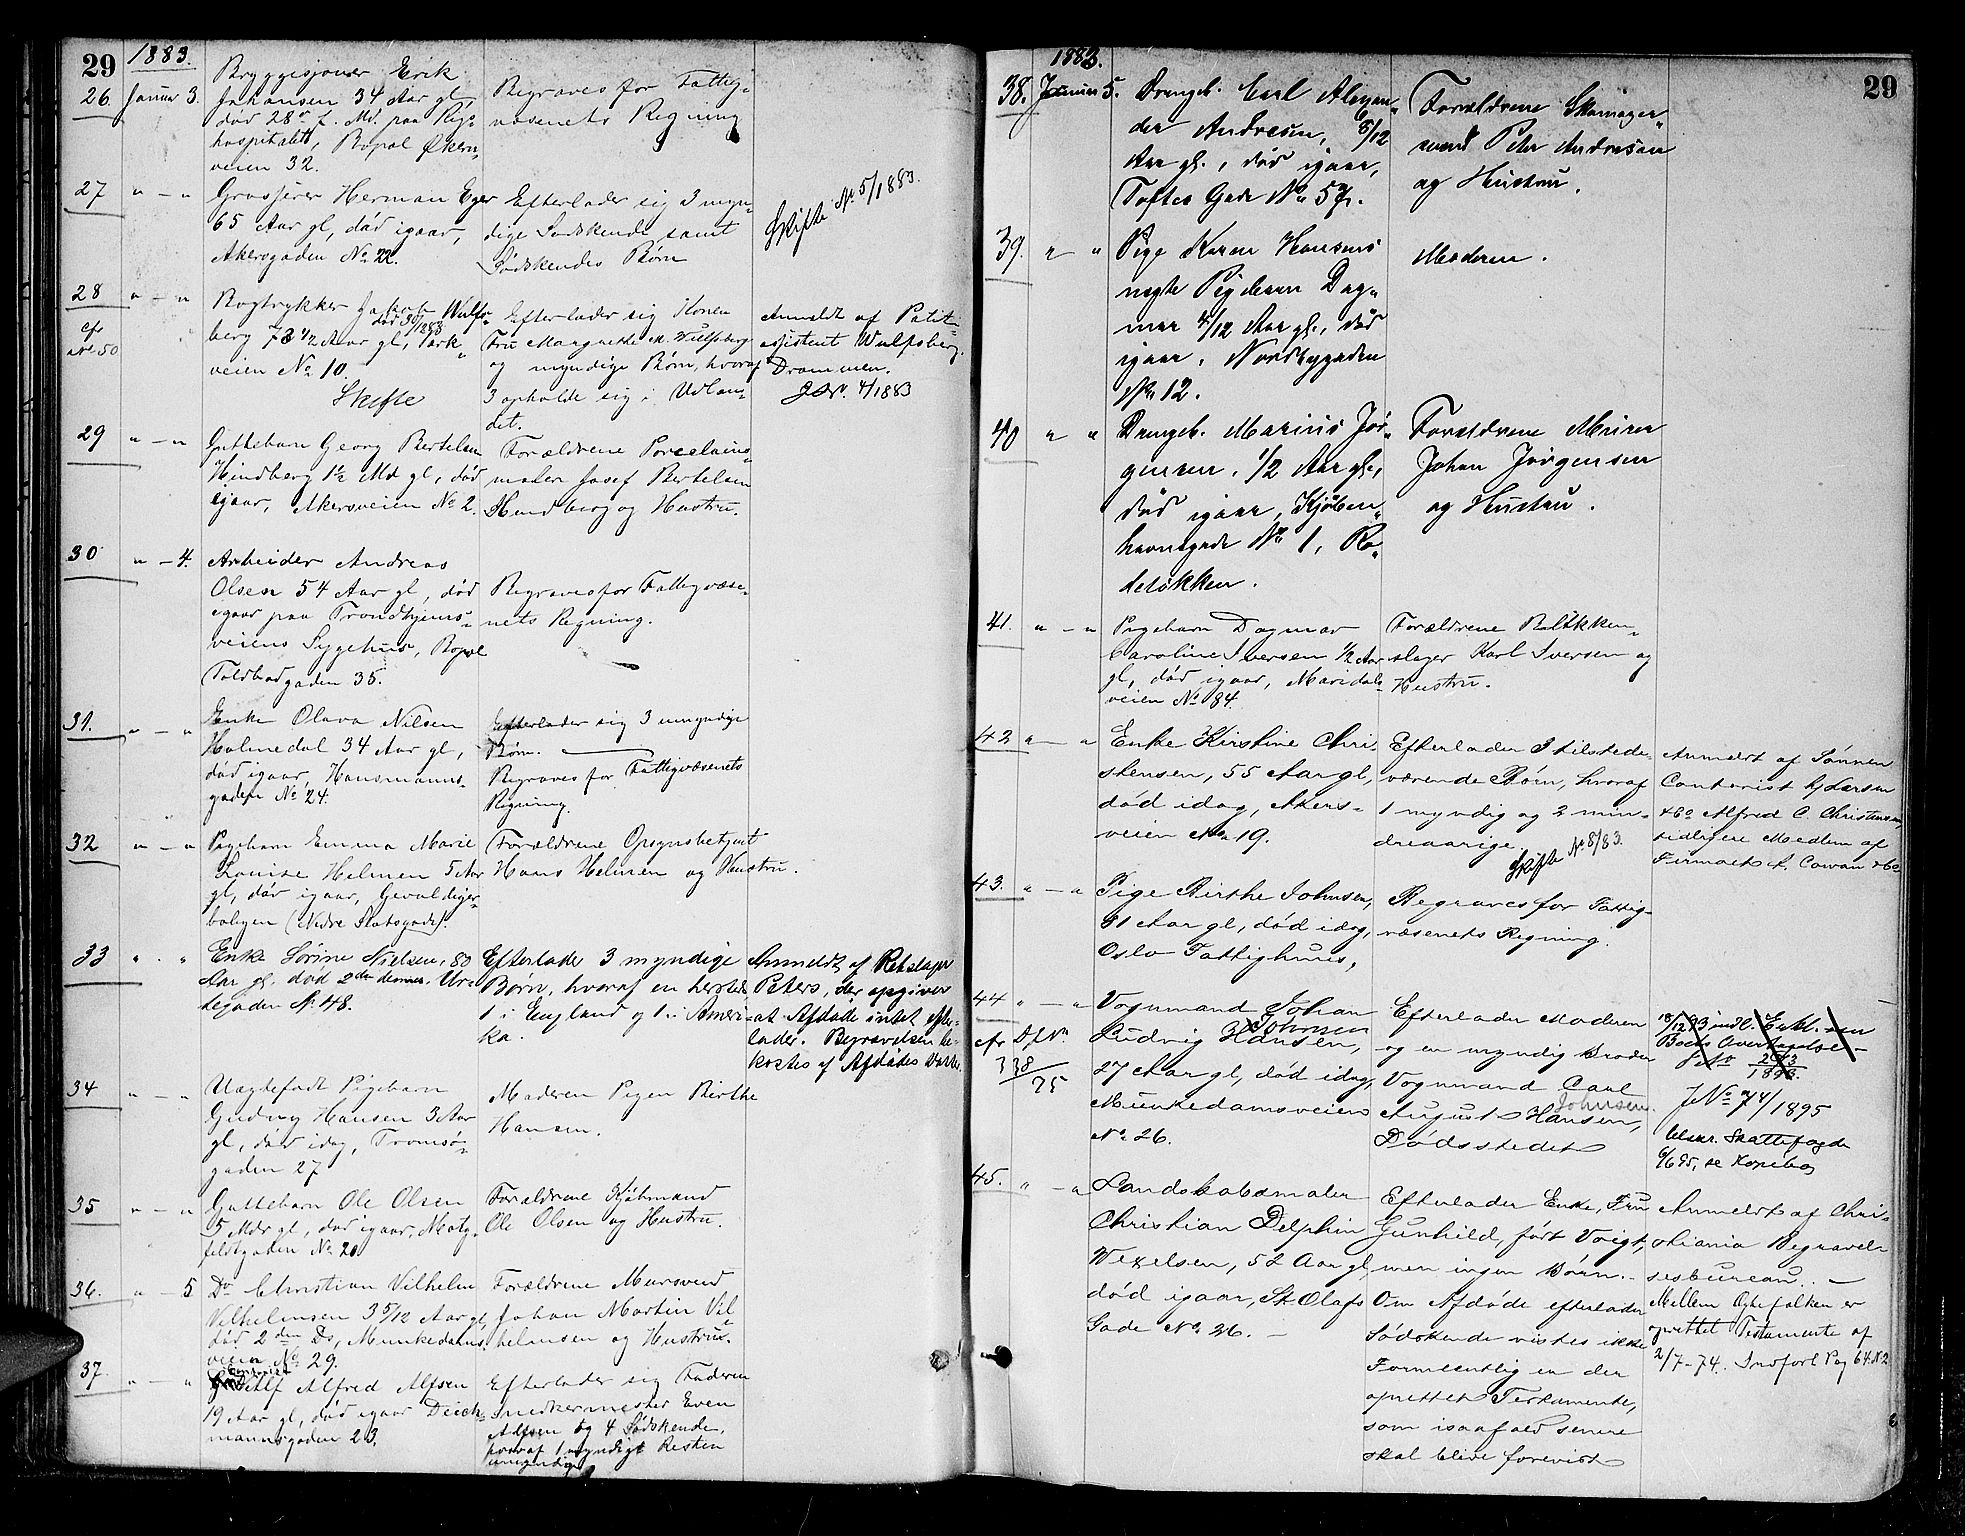 29
1883.
26. Januar 3.
Bryggesjouer Erik
Johansen 34 Aar gl,
død 28de f. Md. paa Rigs
hospitalet, Bopæl Økern-
veien 32.
Begraves for Fattig-
væsenets Regning
27 " — "
Grosserer Herman Eger
65 Aar gl, død igaar,
Akersgaden No 22.
Efterlader sig 3 myn-
dige Sødskende samt
Sødskendes Børn
Skifte No 5/1883.
28 " — "
cfr
No 50
Bogtrykker Jakob Wulfs-
berg 73 1/2 Aar gl, Park-
veien No 10.
Skifte
Efterlader sig Konen
Fru Margrethe M. Wulfsberg
og myndige Børn, hvoraf
3 opholde sig i Udlan-
det.
Anmeldt af Politi-
assistent Wulfsberg.
Drammen.
4/1883
29 " — "
Guttebarn Georg Bertelsen
Hindberg 1 1/2 Md gl, død
igaar, Akersveien No 2.
Forældrene Porcelains-
maler Josef Bertelsen
Hindberg og Hustru.
30 " — 4.
Arbeider Andreas
Olsen 54 Aar gl, død
igaar paa Trondhjems-
veiens Sygehus, Bopæl
Toldbodgaden 35.
Begraves for Fattigvæse-
nets Regning.
31. " — "
Enke Olava Nilsen
Holmedal 34 Aar gl,
død igaar, Hausmanns-
gaden No 24.
Efterlader sig 3 umyndige
Børn. —
Begraves for Fattigvæsenets
Regning.
32 " — "
Pigebarn Emma Marie
Louise Helmen 5 Aar
gl, død igaar, Gevaldiger-
boligen (Nedre Slotsgade).
Forældrene Opsynsbetjent
Hans Helmen og Hustru.
33 " . "
Enke Sørine Nielsen, 83
Aar gl. død 2den dennes. Ur-
tegaden No 48.
Efterlader 3 myndige
Børn, hvoraf en herstede
1 i England og 1 i Ameri-
ka.
Anmeldt af Rebslager
Peters, der opgiver
at Afdøde intet efter-
lader. Begravelsen be-
kostes af Afdødes Datter.
34 " — "
Uægtefødt Pigebarn
Gudny Hansen 3 Aar
gl, død idag, Tromsø-
gaden 27
Moderen Pigen Birthe
Hansen.
35 " — "
Guttebarn Ole Olsen
5 Mdr gl, død igaar, Motz-
feldtgaden No 20
Forældrene Kjøbmand
Ole Olsen og Hustru.
36. " — 5
Do Christian Vilhelm
Vilhelmsen 3 5/12 Aar gl,
død 2den Ds, Munkedams-
veien No 29.
Forældrene Mursvend
Johan Martin Vil-
helmsen og Hustru.
37. " — "
Alf Alfred Alfsen
19 Aar gl, død igaar Deich-
mannsgaden 23.
Efterlader sig Faderen
Snedkermester Even
Alfsen og 4 Sødskende,
hvoraf 1 myndigt Resten
umyndige
29
1883.
38. Januar 5.
Drengeb. Carl Alexan-
der Andresen, 6/12
Aar gl., død igaar,
Toftes Gade No 57.
Forældrene Skomager-
svend Peter Andresen
og Hustru.
39. " "
Pige Karen Hansens
uægte Pigebarn Dag-
mar 4/12 Aar gl., død
igaar. Nordbygaden
No 12.
Moderen.
40 " "
Drengeb. Marius Jør-
gensen, 1/2 Aar gl.,
død igaar, Kjøben-
havnsgade No 1, Ro-
deløkken.
Forældrene Murer
Johan Jørgensen
og Hustru.
41. " — "
Pigebarn Dagmar
Caroline Iversen 1/2 Aar
gl, død igaar, Maridals-
veien No 84.
Forældrene Blikken-
slager Karl Iversen og
Hustru.
42 " — "
Enke Kirstine Chri-
stensen, 55 Aar gl,
død idag, Akers-
veien No 19.
Efterlader 3 tilstede-
værende Børn, hvoraf
1 myndig og 2 min-
dreaarige.
Skifte No 8/83.
Anmeldt af Sønnen
Contorist hj Larsen
& Co Alfred C. Christensen,
tidligere Medlem af
Firmaet A. Cowan & Co
43. " — "
Pige Birthe Johnsen,
81 Aar gl, død idag,
Oslo Fattighuus,
Begraves for Fattig-
væsenets Regning.
44 " — "
cfr D,No
338/95
Vognmand Johan
Ludvig Hansen,
Johnsen
27 Aar gl, død idag,
Munkedamsveien
No 26.
Efterlader Moderen
og en myndig Broder
Vognmand Carl
August Hansen,
Johnsen.
Dødsstedet
JNo 74/1895
Skattefogde
6/6 95, se Kopibog
45. " — "
Landskabsmaler
Christian Delphin
Wexelsen, 52 Aar gl,
død igaar, St Olafs
Gade No 26. —
Efterlader Enke, Fru
Gunhild, født Voigt,
men ingen Børn. -
Om Afdøde efterlader
Sødskende vistes ikke
Formentlig er der
oprettet Testamente,
som isaafald senere
skal blive forevist
Anmeldt af Chri-
stiania Begravel-
sesbureau. —
Mellem Ægtefolken er
oprettet Testamente af
2/7-74. Indført Pag 64 N 2